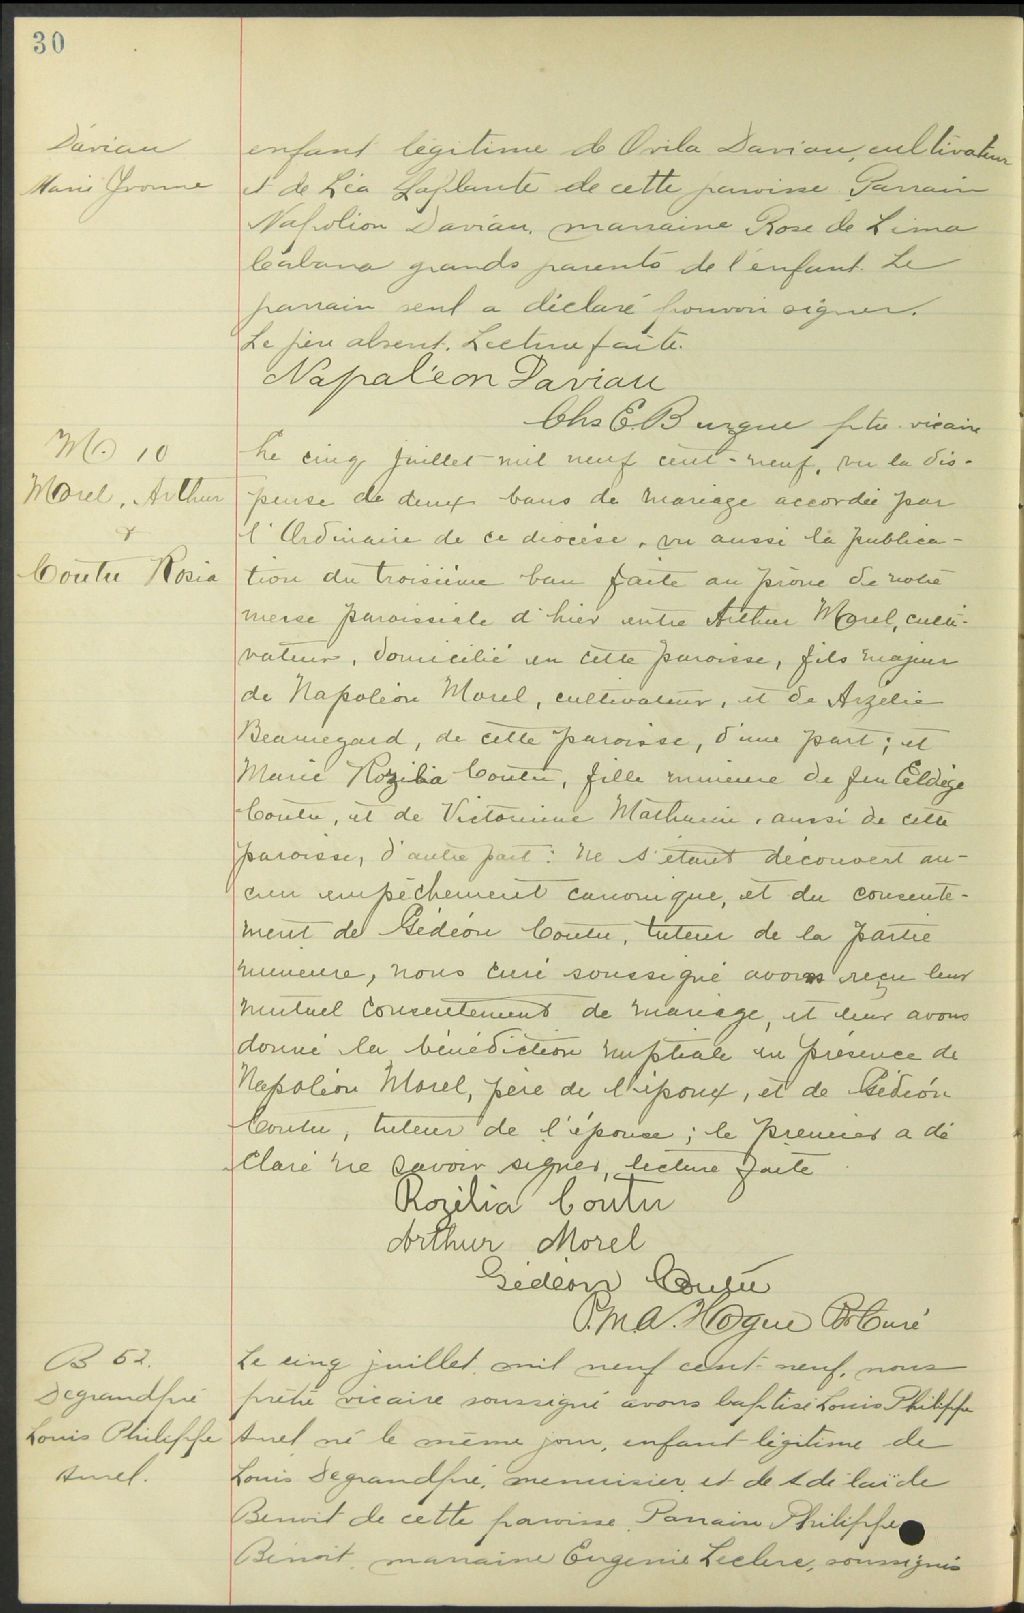 30
Daviau
Marie Yvonne
enfant légitime de Ovila Daviau, cultivateur
et de Léa Laplante de cette paroisse Parrain
Napoléon Daviau, marraine Rose de Lima
Cabana grands parents de l'enfant. Le
parrain seul a déclaré pouvoir signer.
Le père absent. Lecture faite.
Napaléon Daviau
Chs E. Burque ptre vicaire
M. 10
Morel, Arthur
&
Coutu Rosia
Le cinq juillet mil neuf cent-neuf, vu la dis-
pense de deux bans de mariage accordée par
l'Ordinaire de ce diocèse, vu aussi la publica-
tion du troisième ban faite au prône de notre
messe paroissiale d'hier entre Arthur Morel, culti-
vateur, domicilié en cette paroisse, fils majeur
de Napoléon Morel, cultivateur, et de Arzélie
Beauregard, de cette paroisse, d'une part; et
Marie Rozilia Coutu, fille mineure de feu Eldège
Coutu, et de Victorine Mathurin, aussi de cette
paroisse, d'autre part: ne s'étant découvert au-
cun empêchement canonique, et du consente-
ment de Gédéon Coutu, tuteur de la partie
mineure, nous curé soussigné avons reçu leur
mutuel consentement de mariage, et leur avons
donné la bénédiction nuptiale en présence de
Napoléon Morel, père de l'époux, et de Gédéon
Coutu, tuteur de l'épouse; le premier a dé
claré ne savoir signer, lecture faite
Rozilia Coutu
Arthur Morel
Gédéon Coutu
P.M.A. Hogue Ptr Curé
B 52.
Degrandpré
Louis Philippe
Aurel.
Le cinq juillet mil neuf cent-neuf, nous
prêtre vicaire soussigné avons baptisé Louis Philippe
Aurel né le même jour, enfant légitime de
Louis Degrandpré, menuisier, et de Adélaïde
Benoit de cette paroisse. Parrain Philippe
Benoit, marraine Eugenie Leclerc, soussignés